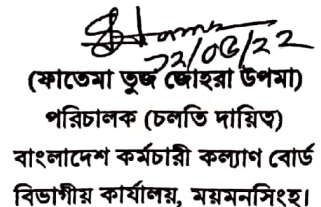 ১২/০৫/২২
(ফাতেমা তুজ জোহরা উপমা)
পরিচালক (চলতি দায়িত্ব)
বাংলাদেশ কর্মচারী কল্যাণ বোর্ড
বিভাগীয় কার্যালয়, ময়মনসিংহ।